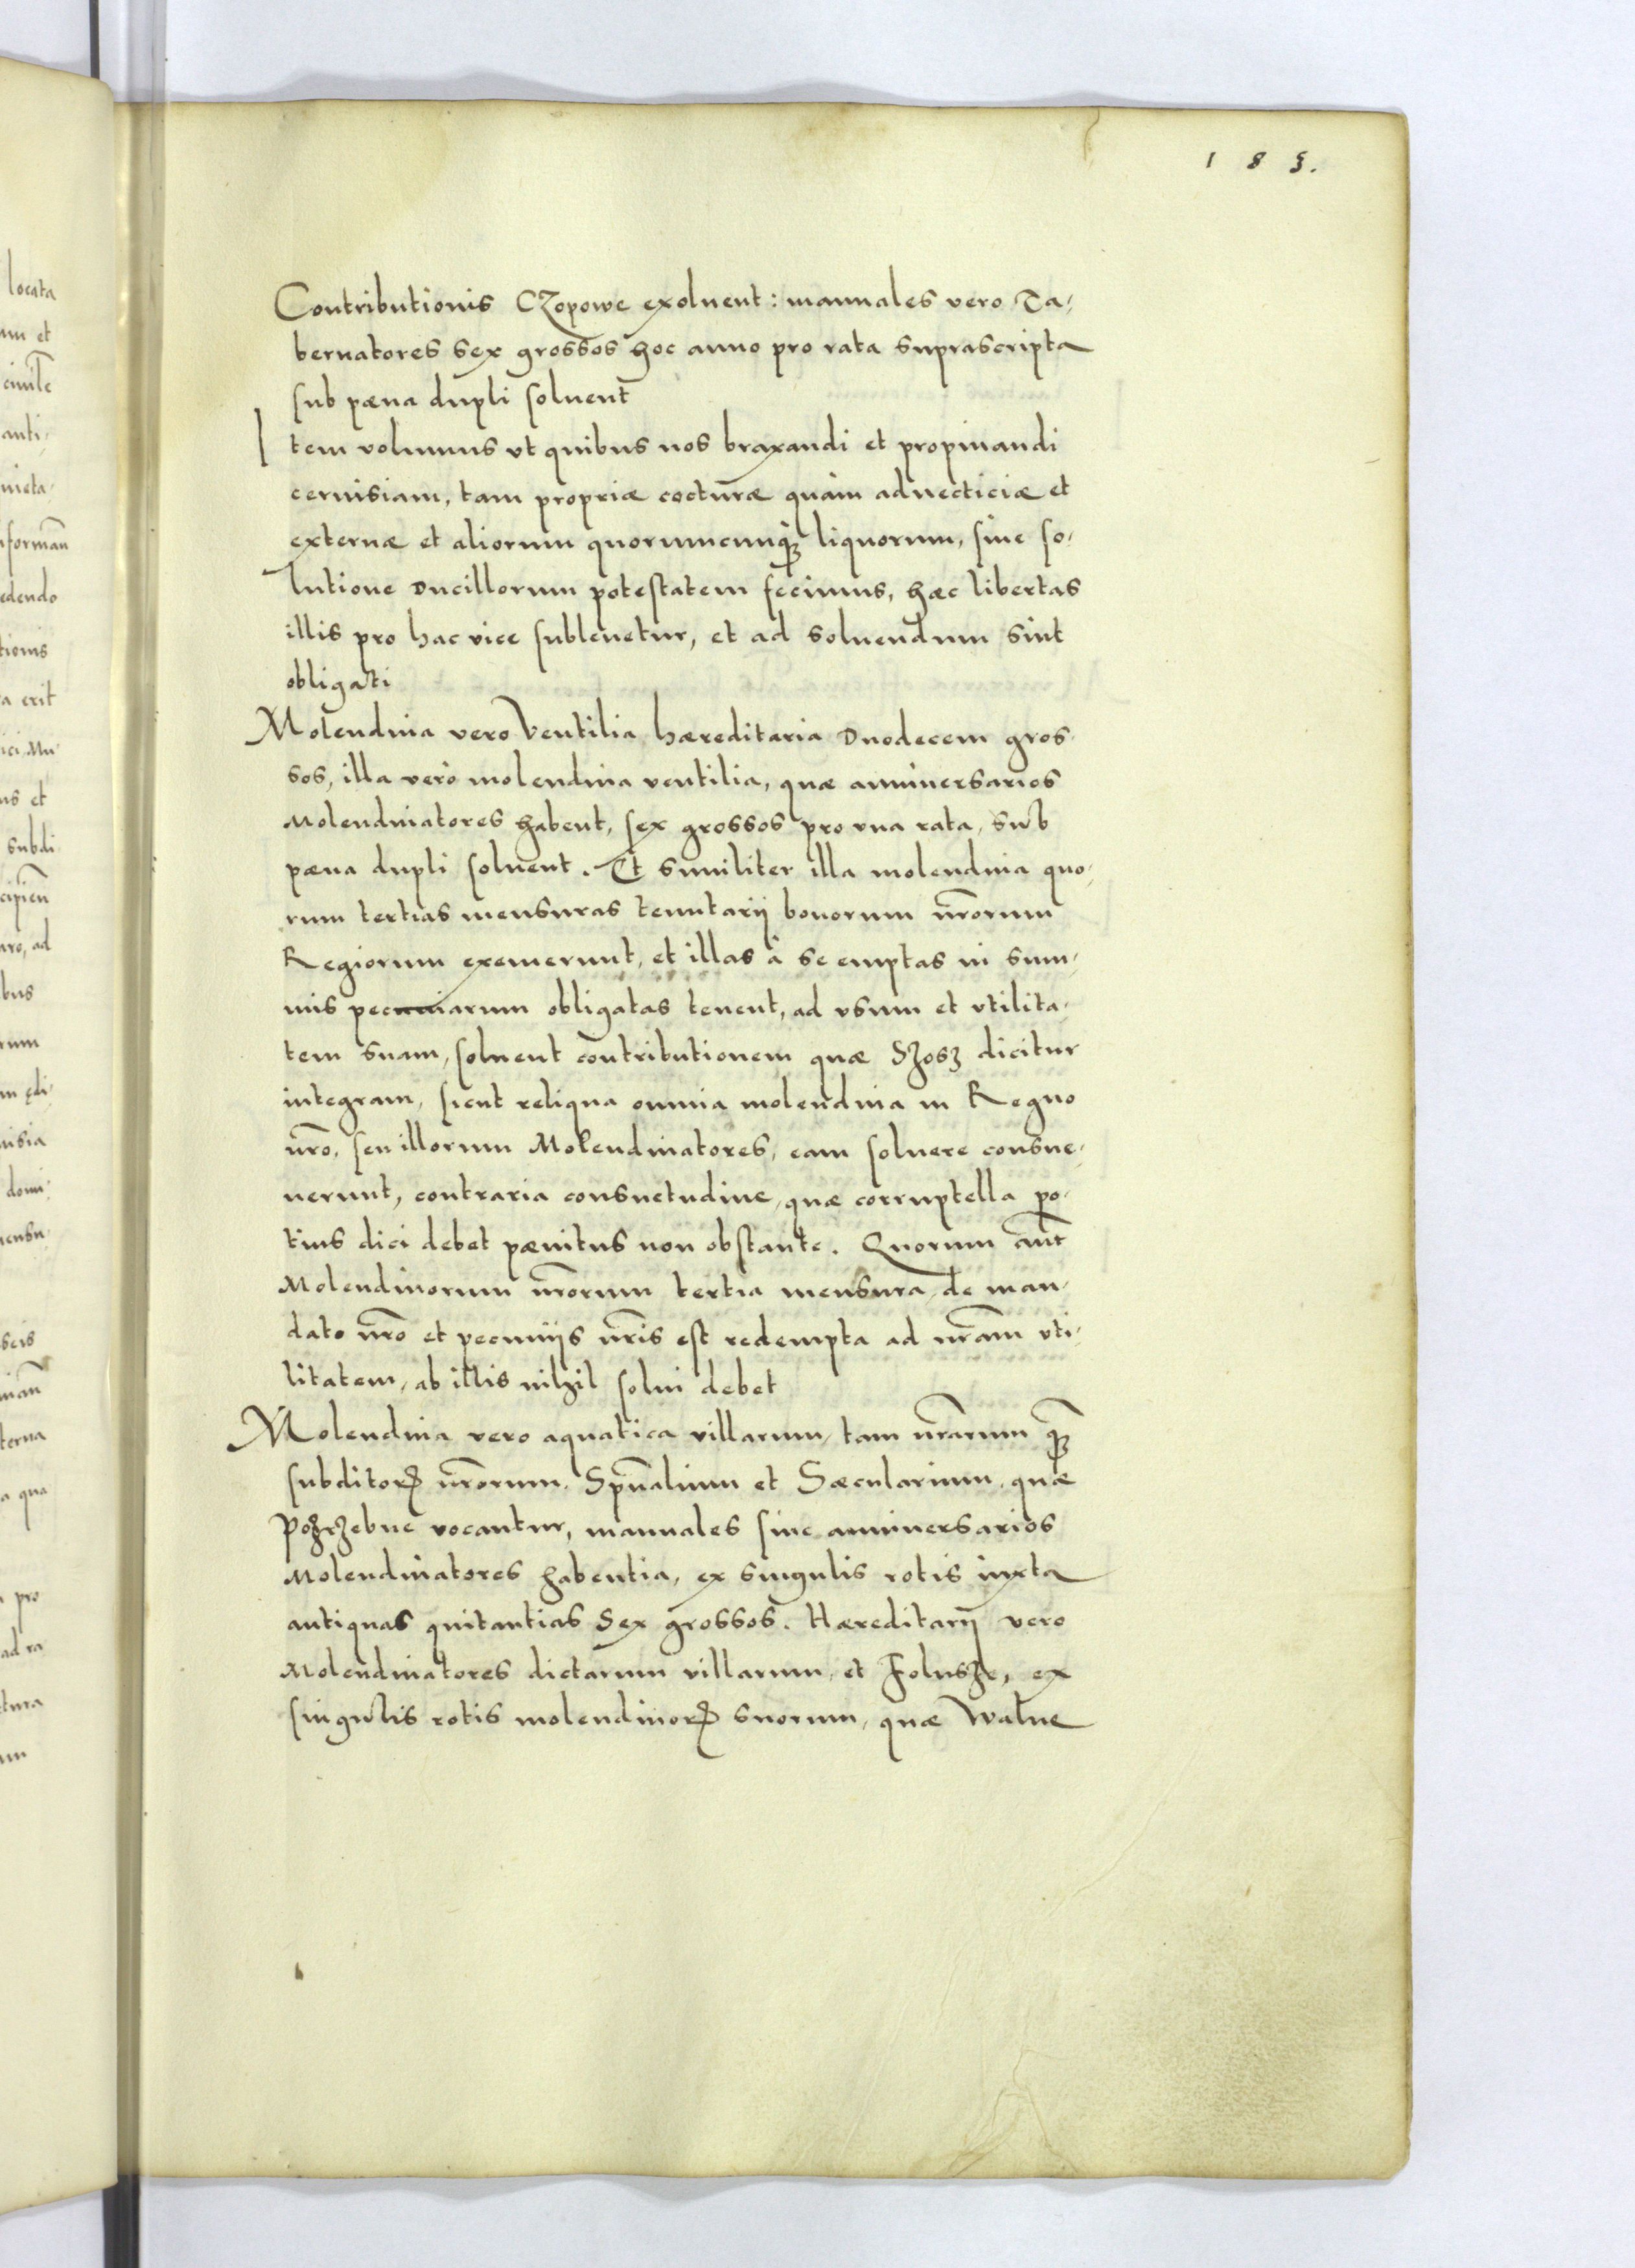 183.
Contributionis Czopowe exoluent: manuales vero Ta-
bernatores sex grossos hoc anno pro rata suprascripta
sub pæna dupli soluent
Item volumus vt quibus nos braxandi et propinandi
ceruisiam, tam propriæ cocturæ quàm aduecticiæ et
externæ et aliorum quorumcunq liquorum, sine so-
lutione Ducillorum potestatem fecimus, hæc libertas
illis pro hac vice subleuetur, et ad soluendum sint
obligati
Molendina vero Ventilia hæreditaria Duodecem gros-
sos, illa verò molendina ventilia, quæ anniuersarios
Molendinatores habent, sex grossos pro vna rata, sub
pæna dupli soluent. Et similiter illa molendina quo-
rum tertias mensuras tenutarij bonorum nrõrum
Regiorum exemerunt, et illas à se emptas in sum-
mis pecuniarum obligatas tenent, ad vsum et vtilita-
tem suam, soluent contributionem quæ Szosz dicitur
integram, sicut reliqua omnia molendina in Regno
nrõ, seu illorum Molendinatores, eam soluere consue-
uerunt, contraria consuetudine, quæ corruptella po-
tius dici debet pænitus non obstante. Quorum aut̃
Molendinorum nrõrum tertia mensura, de man-
dato nrõ et pecunijs nrĩs est redempta ad nrãm vti-
litatem, ab illis nihil solui debet
Molendina vero aquatica villarum, tam nrãrum q̃
subditorꝝ nrõrum, Spũalium et Sæcularium, quæ
Pozrzebne vocantur, manuales siue anniuersarios
Molendinatores habentia, ex singulis rotis iuxta
antiquas quitantias Sex grossos. Hæreditarij vero
Molendinatores dictarum villarum, et Folusze, ex
singulis rotis molendinorꝝ suorum, quæ Walne